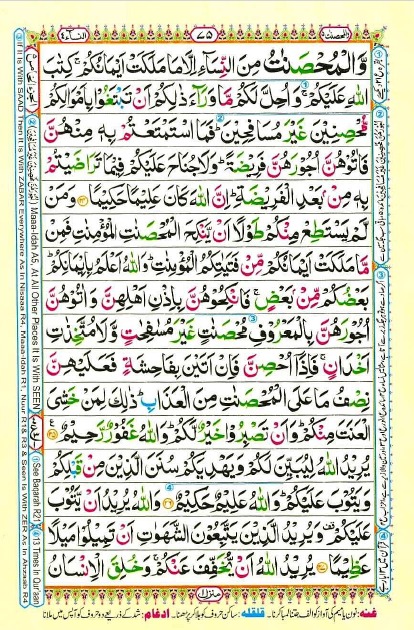 النسآء ٤
٧٥
والمحصنت ٥
وَّالْمُحْصَنٰتُ مِنَ النِّسَآءِ اِلَّا مَا مَلَكَتْ اَيْمَانُكُمْ ۚ كِتٰبَ
اللّٰهِ عَلَيْكُمْ ۚ وَاُحِلَّ لَكُمْ مَّا وَرَآءَ ذٰلِكُمْ اَنْ تَبْتَغُوْا بِاَمْوَالِكُمْ
مُّحْصِنِيْنَ غَيْرَ مُسٰفِحِيْنَ ؕ فَمَا اسْتَمْتَعْتُمْ بِهٖ مِنْهُنَّ
فَاٰتُوْهُنَّ اُجُوْرَهُنَّ فَرِيْضَةً ؕ وَلَا جُنَاحَ عَلَيْكُمْ فِيْمَا تَرٰضَيْتُمْ
بِهٖ مِنْۢ بَعْدِ الْفَرِيْضَةِ ؕ اِنَّ اللّٰهَ كَانَ عَلِيْمًا حَكِيْمًا ﴿۲۴﴾ وَمَنْ
لَّمْ يَسْتَطِعْ مِنْكُمْ طَوْلًا اَنْ يَّنْكِحَ الْمُحْصَنٰتِ الْمُؤْمِنٰتِ فَمِنْ
مَّا مَلَكَتْ اَيْمَانُكُمْ مِّنْ فَتَيٰتِكُمُ الْمُؤْمِنٰتِ ؕ وَاللّٰهُ اَعْلَمُ بِاِيْمَانِكُمْ ؕ
بَعْضُكُمْ مِّنْۢ بَعْضٍ ۚ فَانْكِحُوْهُنَّ بِاِذْنِ اَهْلِهِنَّ وَاٰتُوْهُنَّ
اُجُوْرَهُنَّ بِالْمَعْرُوْفِ مُحْصَنٰتٍ غَيْرَ مُسٰفِحٰتٍ وَّلَا مُتَّخِذٰتِ
اَخْدَانٍ ۚ فَاِذَاۤ اُحْصِنَّ فَاِنْ اَتَيْنَ بِفَاحِشَةٍ فَعَلَيْهِنَّ
نِصْفُ مَا عَلَى الْمُحْصَنٰتِ مِنَ الْعَذَابِ ؕ ذٰلِكَ لِمَنْ خَشِيَ
الْعَنَتَ مِنْكُمْ ؕ وَاَنْ تَصْبِرُوْا خَيْرٌ لَّكُمْ ؕ وَاللّٰهُ غَفُوْرٌ رَّحِيْمٌ ﴿۲۵﴾
يُرِيْدُ اللّٰهُ لِيُبَيِّنَ لَكُمْ وَيَهْدِيَكُمْ سُنَنَ الَّذِيْنَ مِنْ قَبْلِكُمْ
وَيَتُوْبَ عَلَيْكُمْ ؕ وَاللّٰهُ عَلِيْمٌ حَكِيْمٌ ﴿۲۶﴾ وَاللّٰهُ يُرِيْدُ اَنْ يَّتُوْبَ
عَلَيْكُمْ ۟ وَيُرِيْدُ الَّذِيْنَ يَتَّبِعُوْنَ الشَّهَوٰتِ اَنْ تَمِيْلُوْا مَيْلًا
عَظِيْمًا ﴿۲۷﴾ يُرِيْدُ اللّٰهُ اَنْ يُّخَفِّفَ عَنْكُمْ ۚ وَخُلِقَ الْاِنْسَانُ
منزل ١
① If It Is With SAAD Then It Is With ZABAR Everywhere As In Nisaaa R4, Maaa-Idah R1, Nuur R1& R3 & Seen Is With ZER As In Ahzaab R4
② Maaa-Idah A5, At All Other Places It Is With SEEN
③ See Baqarah R21
④ 13 Times In Qur'aan
غنہ: نون یا میم کی آواز کو الف جتنا لمبا کرنا۔ قلقلہ: ساکن حروف کو ہلا کر پڑھنا۔ ادغام: شد کے ذریعے دو حروف کو آپس میں ملانا